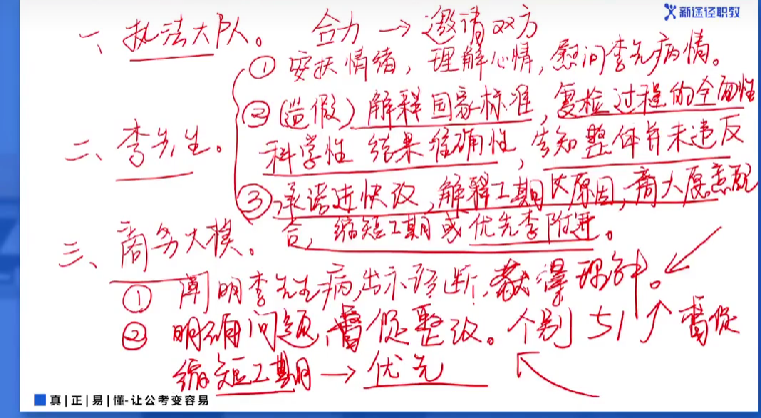 新途径职教
一、执法大队。 合力 → 邀请双方
① 安抚情绪，理解心情，慰问李先病情。
②(造假) 解释国家标准，复检过程的全面性
二、李先生。 科学性 结果准确性，告知整体并未违反
③ 承诺进快改，解释工期长原因，商大愿意配
合，缩短工期或优先李附近。
三、商务大模。
① 阐明李先生病，出示诊断，获得理解。
② 明确问题，督促整改。个别 51↑ 督促
缩短工期 → 优先
真|正|易|懂-让公考变容易